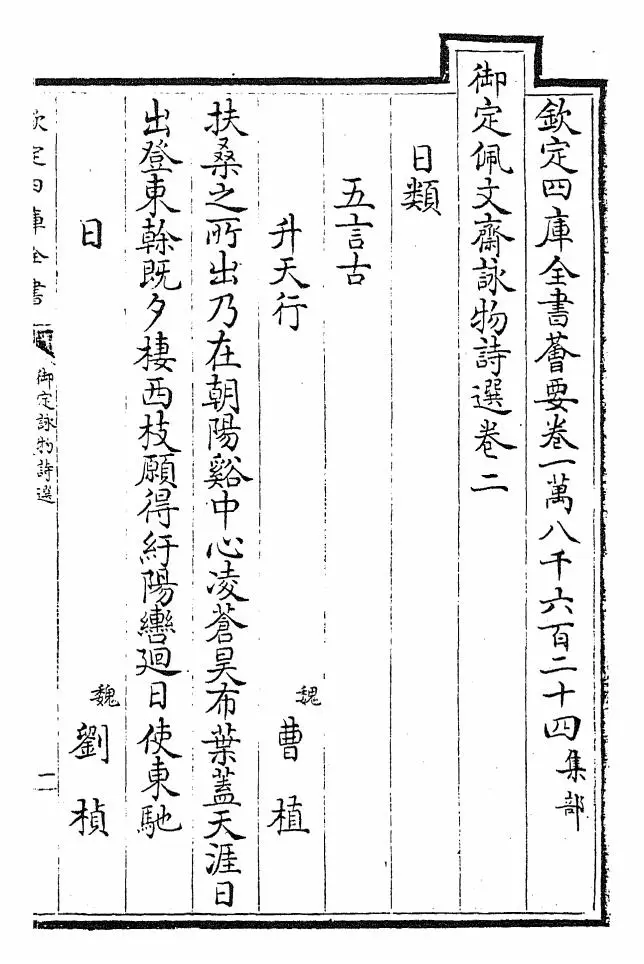 欽定四庫全書薈要卷一萬八千六百二十四集部
御定佩文齋詠物詩選卷二
日類
五言古
升天行 魏 曹植
扶桑之所出乃在朝陽谿中心凌蒼昊布葉蓋天涯日
出登東榦既夕棲西枝願得紆陽轡廻日使東馳
日 魏 劉楨
欽定四庫全書 御定詠物詩選 二